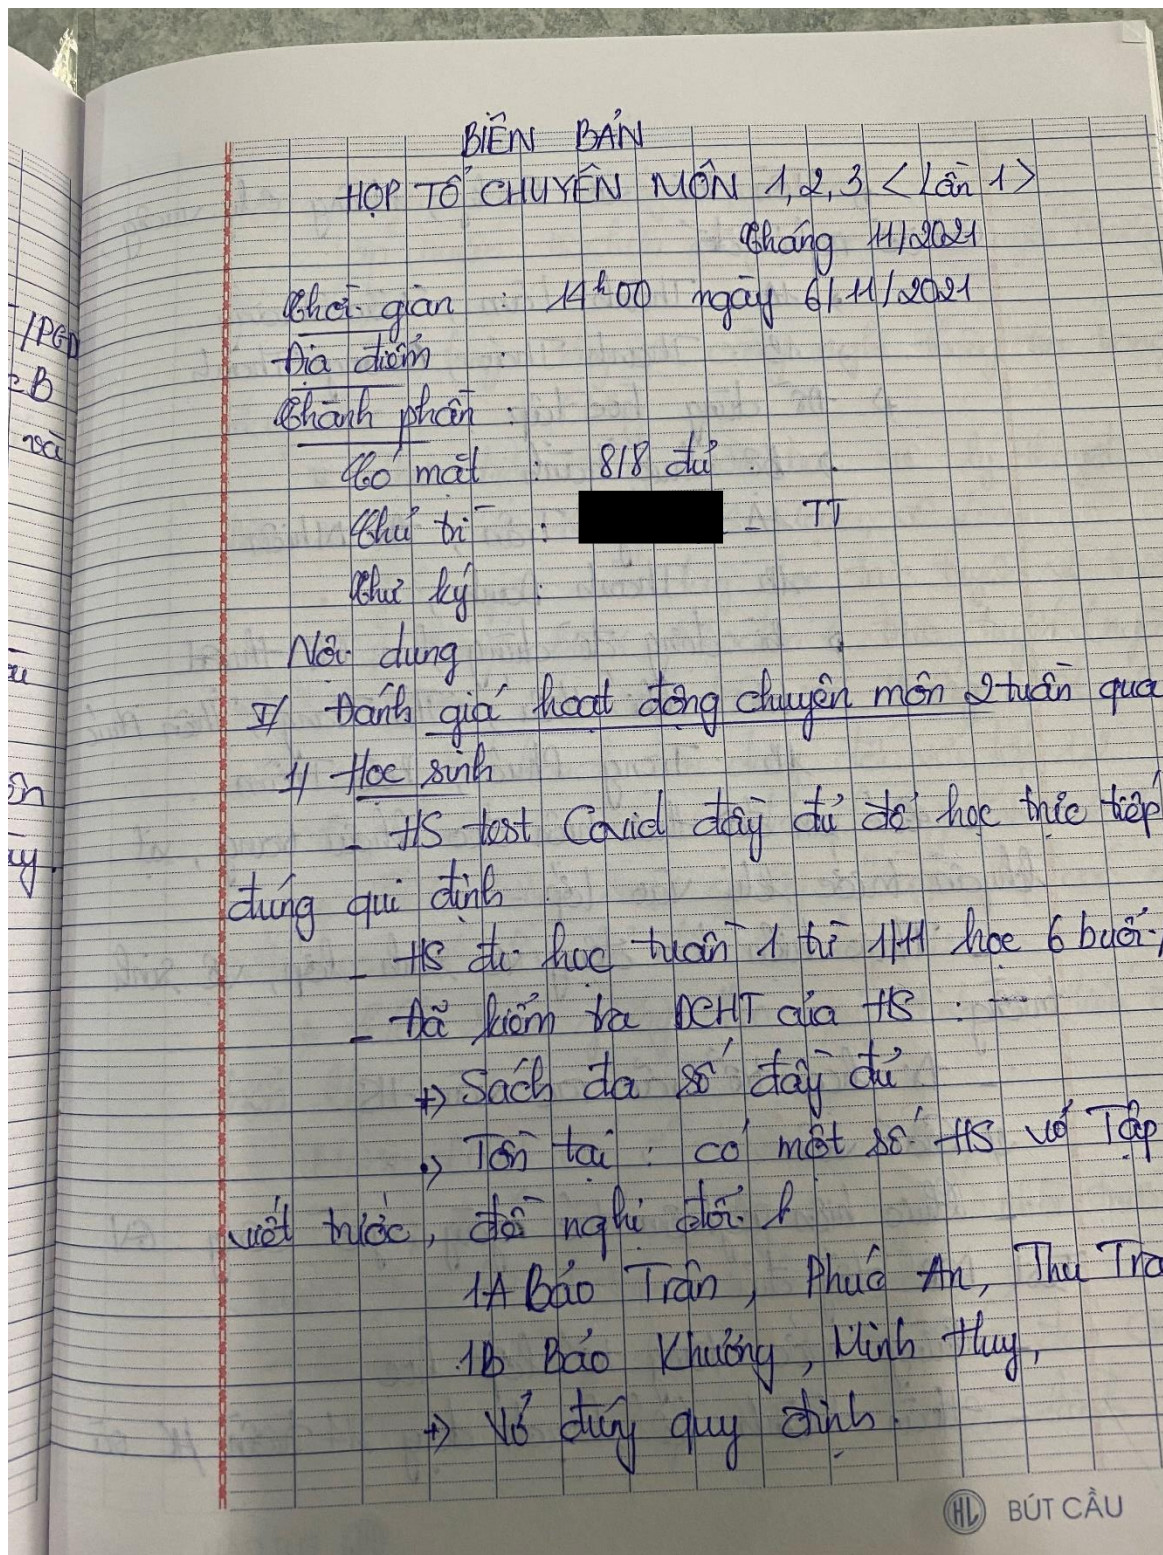 BIÊN BẢN
HỌP TỔ CHUYÊN MÔN 1, 2, 3 <Lần 1>
Tháng 11/2021
Thời gian : 14h00 ngày 6/11/2021
Địa điểm :
Thành phần :
Có mặt : 8/8 đủ
Chủ trì : - TT
Thư ký :
Nội dung
I/ Đánh giá hoạt động chuyên môn 2 tuần qua
1/ Học sinh
- HS test Covid đầy đủ để học trực tiếp
đúng qui định
- HS đi học tuần 1 từ 1/11 học 6 buổi
- Đã kiểm tra ĐCHT của HS :
+> Sách đa số đầy đủ
+> Tồn tại : có một số HS vở Tập
viết trước, đề nghị đổi
1A Bảo Trân, Phúc An, Thu Tra
1B Bảo Khương, Minh Huy,
+> Vở đúng quy định.
/PGD
B
và
HL BÚT CẦU